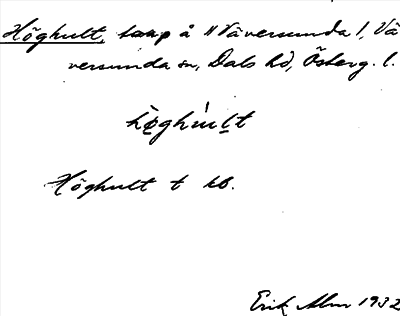 Höghult, torp å Väversunda 1, Vä
versunda sn, Dals hd, Österg. l.
Höghult t kb.
Erik Alm 1932